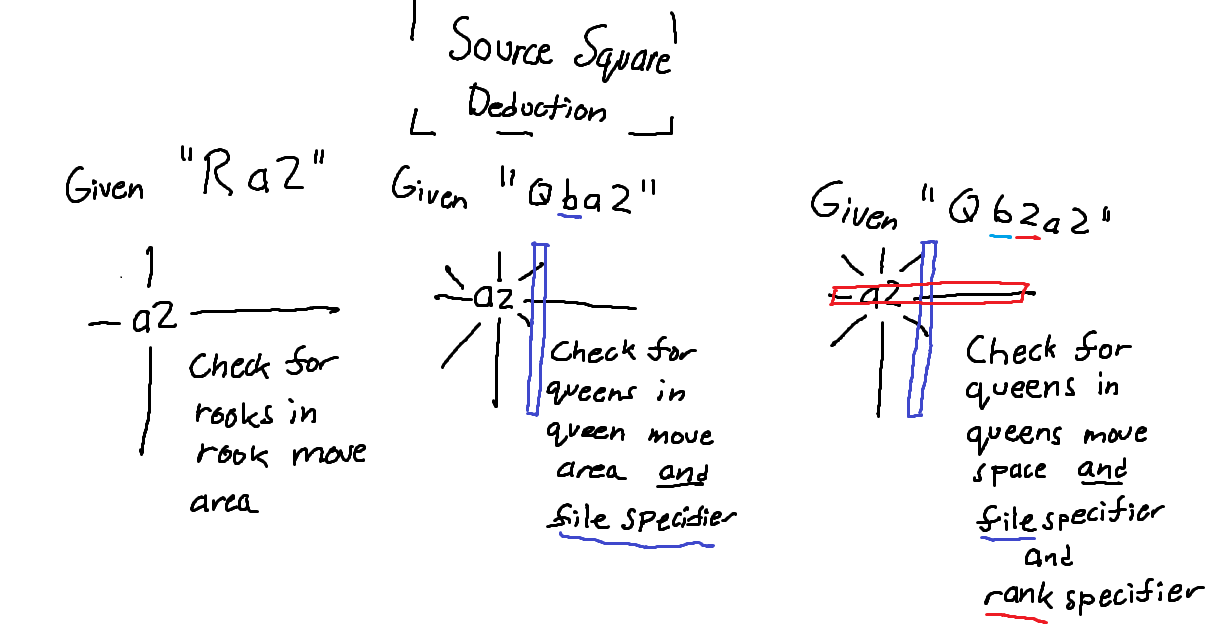 Source Square
Deduction
Given "Ra2"
a2
Check for
rooks in
rook move
area
Given "Qba2"
a2
Check for
queens in
queen move
area and
file specifier
Given "Qb2a2"
a2
Check for
queens in
queens move
space and
file specifier
and
rank specifier